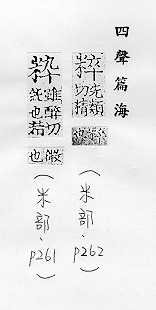 四聲篇海
粹先類切精
（米部．P262）
粋雖醉切純也精
也
（米部．P261）